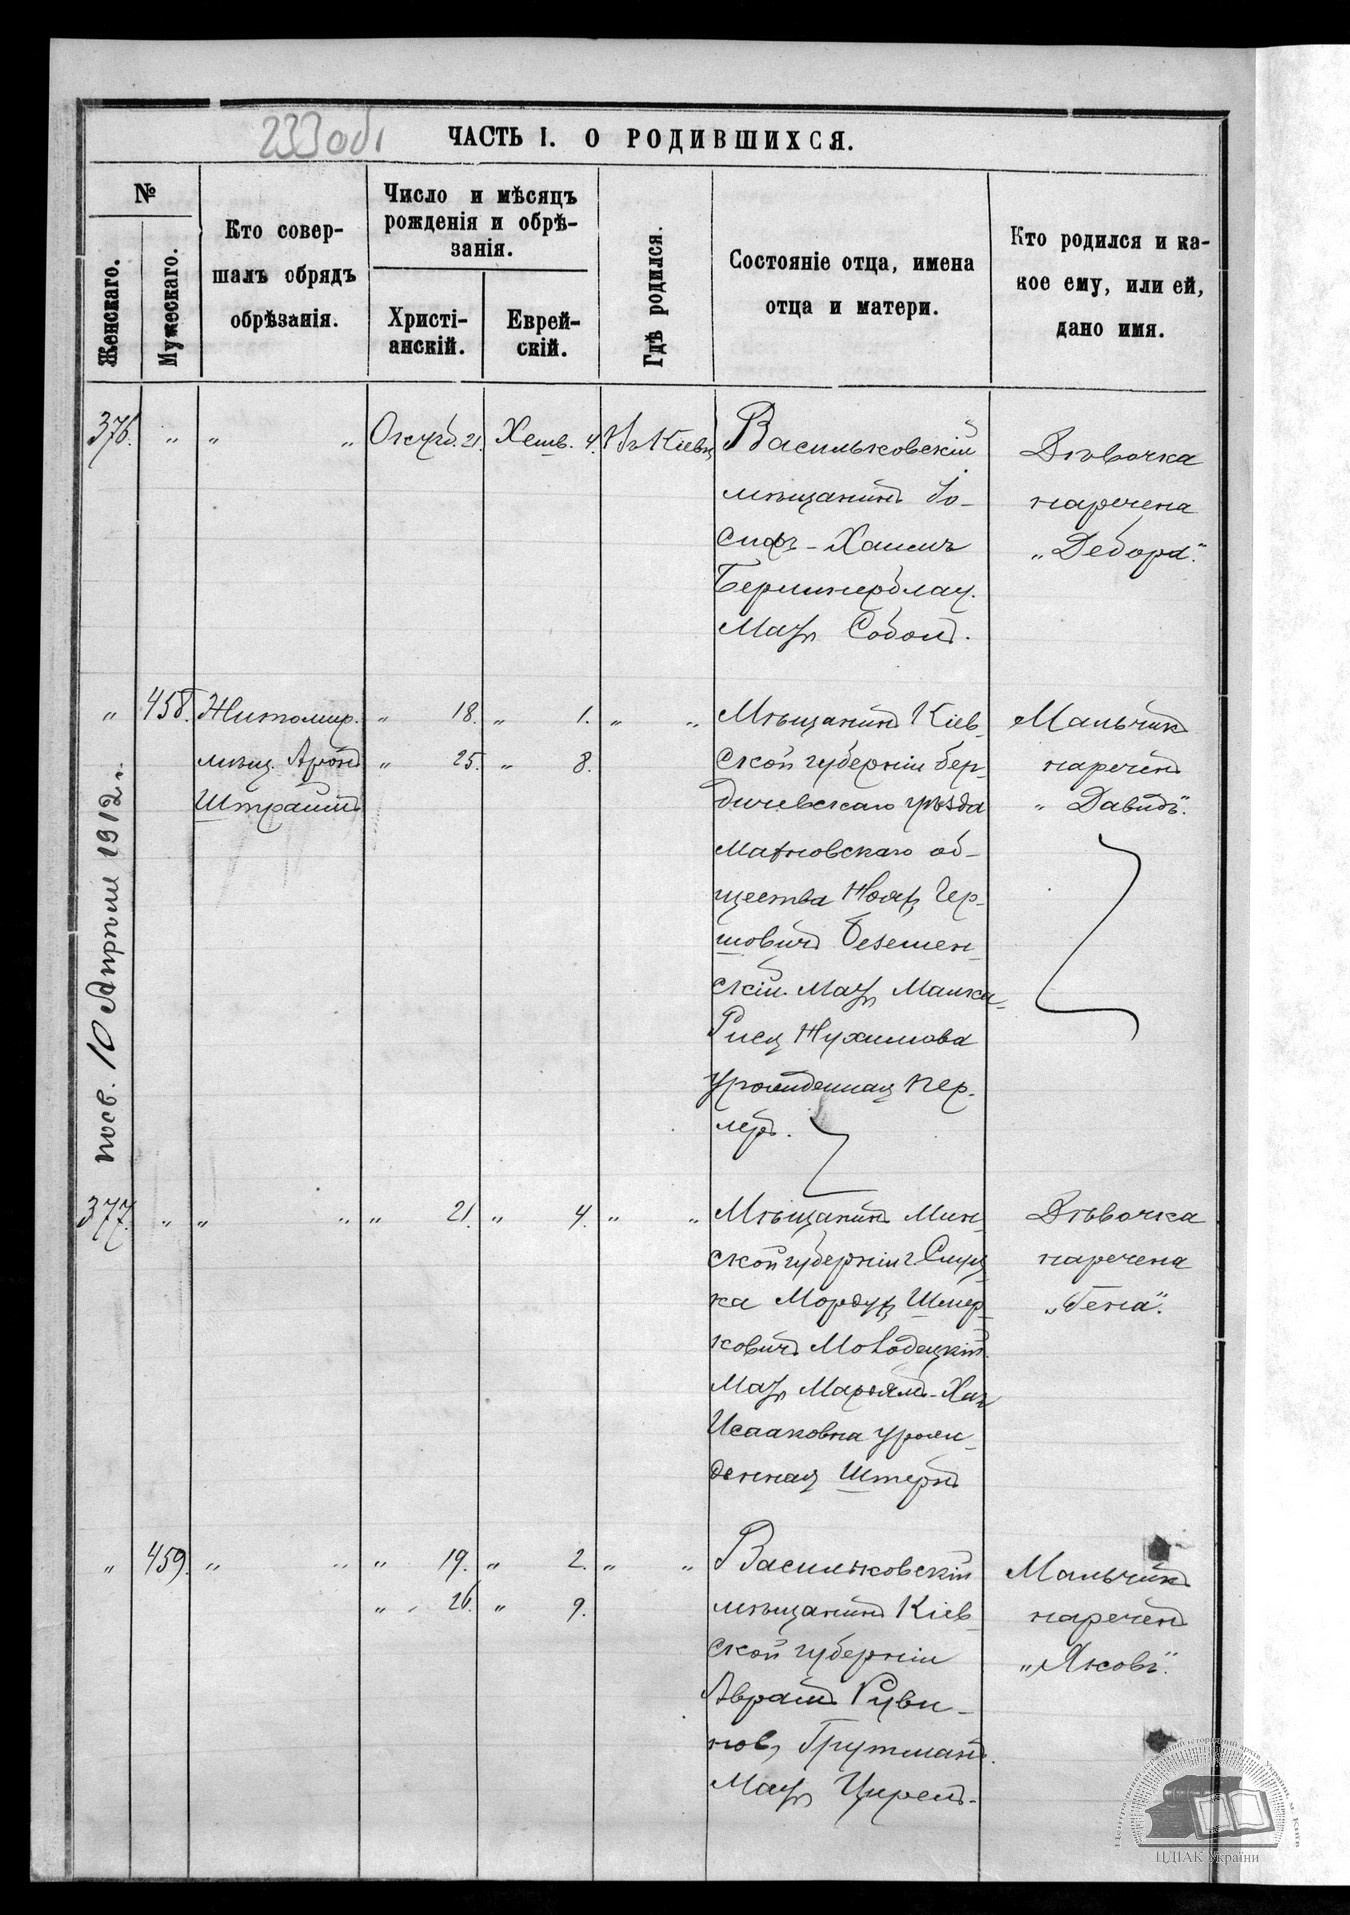 233 об
ЧАСТЬ I. О РОДИВШИХСЯ.
№
Женскаго.
Мужескаго.
Кто совер-
шалъ обрядъ
обрѣзанія.
Число и мѣсяцъ
рожденія и обрѣ-
занія.
Христі-
анскій.
Еврей-
скій.
Гдѣ родился.
Состояніе отца, имена
отца и матери.
Кто родился и ка-
кое ему, или ей,
дано имя.
376. " " " Октяб. 21. Хешв. 4. Въ Кіевѣ
Васильковскій
мѣщанинъ Іо-
сифъ-Хаимъ
Берлинерблау.
Мать Соболь.
Дѣвочка
наречена
„Дебора".
" 458. Житомир. " 18. " 1. " "
мѣщ. Аронъ " 25. " 8.
Штраимъ
Мѣщанинъ Кіев-
ской губерніи бер-
дичевскаго уѣзда
общества Ноях Гер-
шовичъ
скій. Мать Малка-
Рися Нухимова
урожденная Пер-
леръ.
Мальчикъ
нареченъ
„Давидъ".
посв. 10 Апрѣля 1912 г.
377. " " " " 21. " 4. " "
Мѣщанинъ Мин-
ской губерніи г. Слуц-
ка Мордух Шмер-
ковичъ Молодецкій.
Мать Марьямъ-Хая
Исааковна урож-
денная Штернъ
Дѣвочка
наречена
„Геня".
" 459. " " " 19. " 2. " "
" 26. " 9.
Васильковскій
мѣщанинъ Кіев-
ской губерніи
Аврамъ Руви-
новъ Грутманъ.
Мать Цирель.
Мальчикъ
нареченъ
„Яковъ".
ЦДІАК України